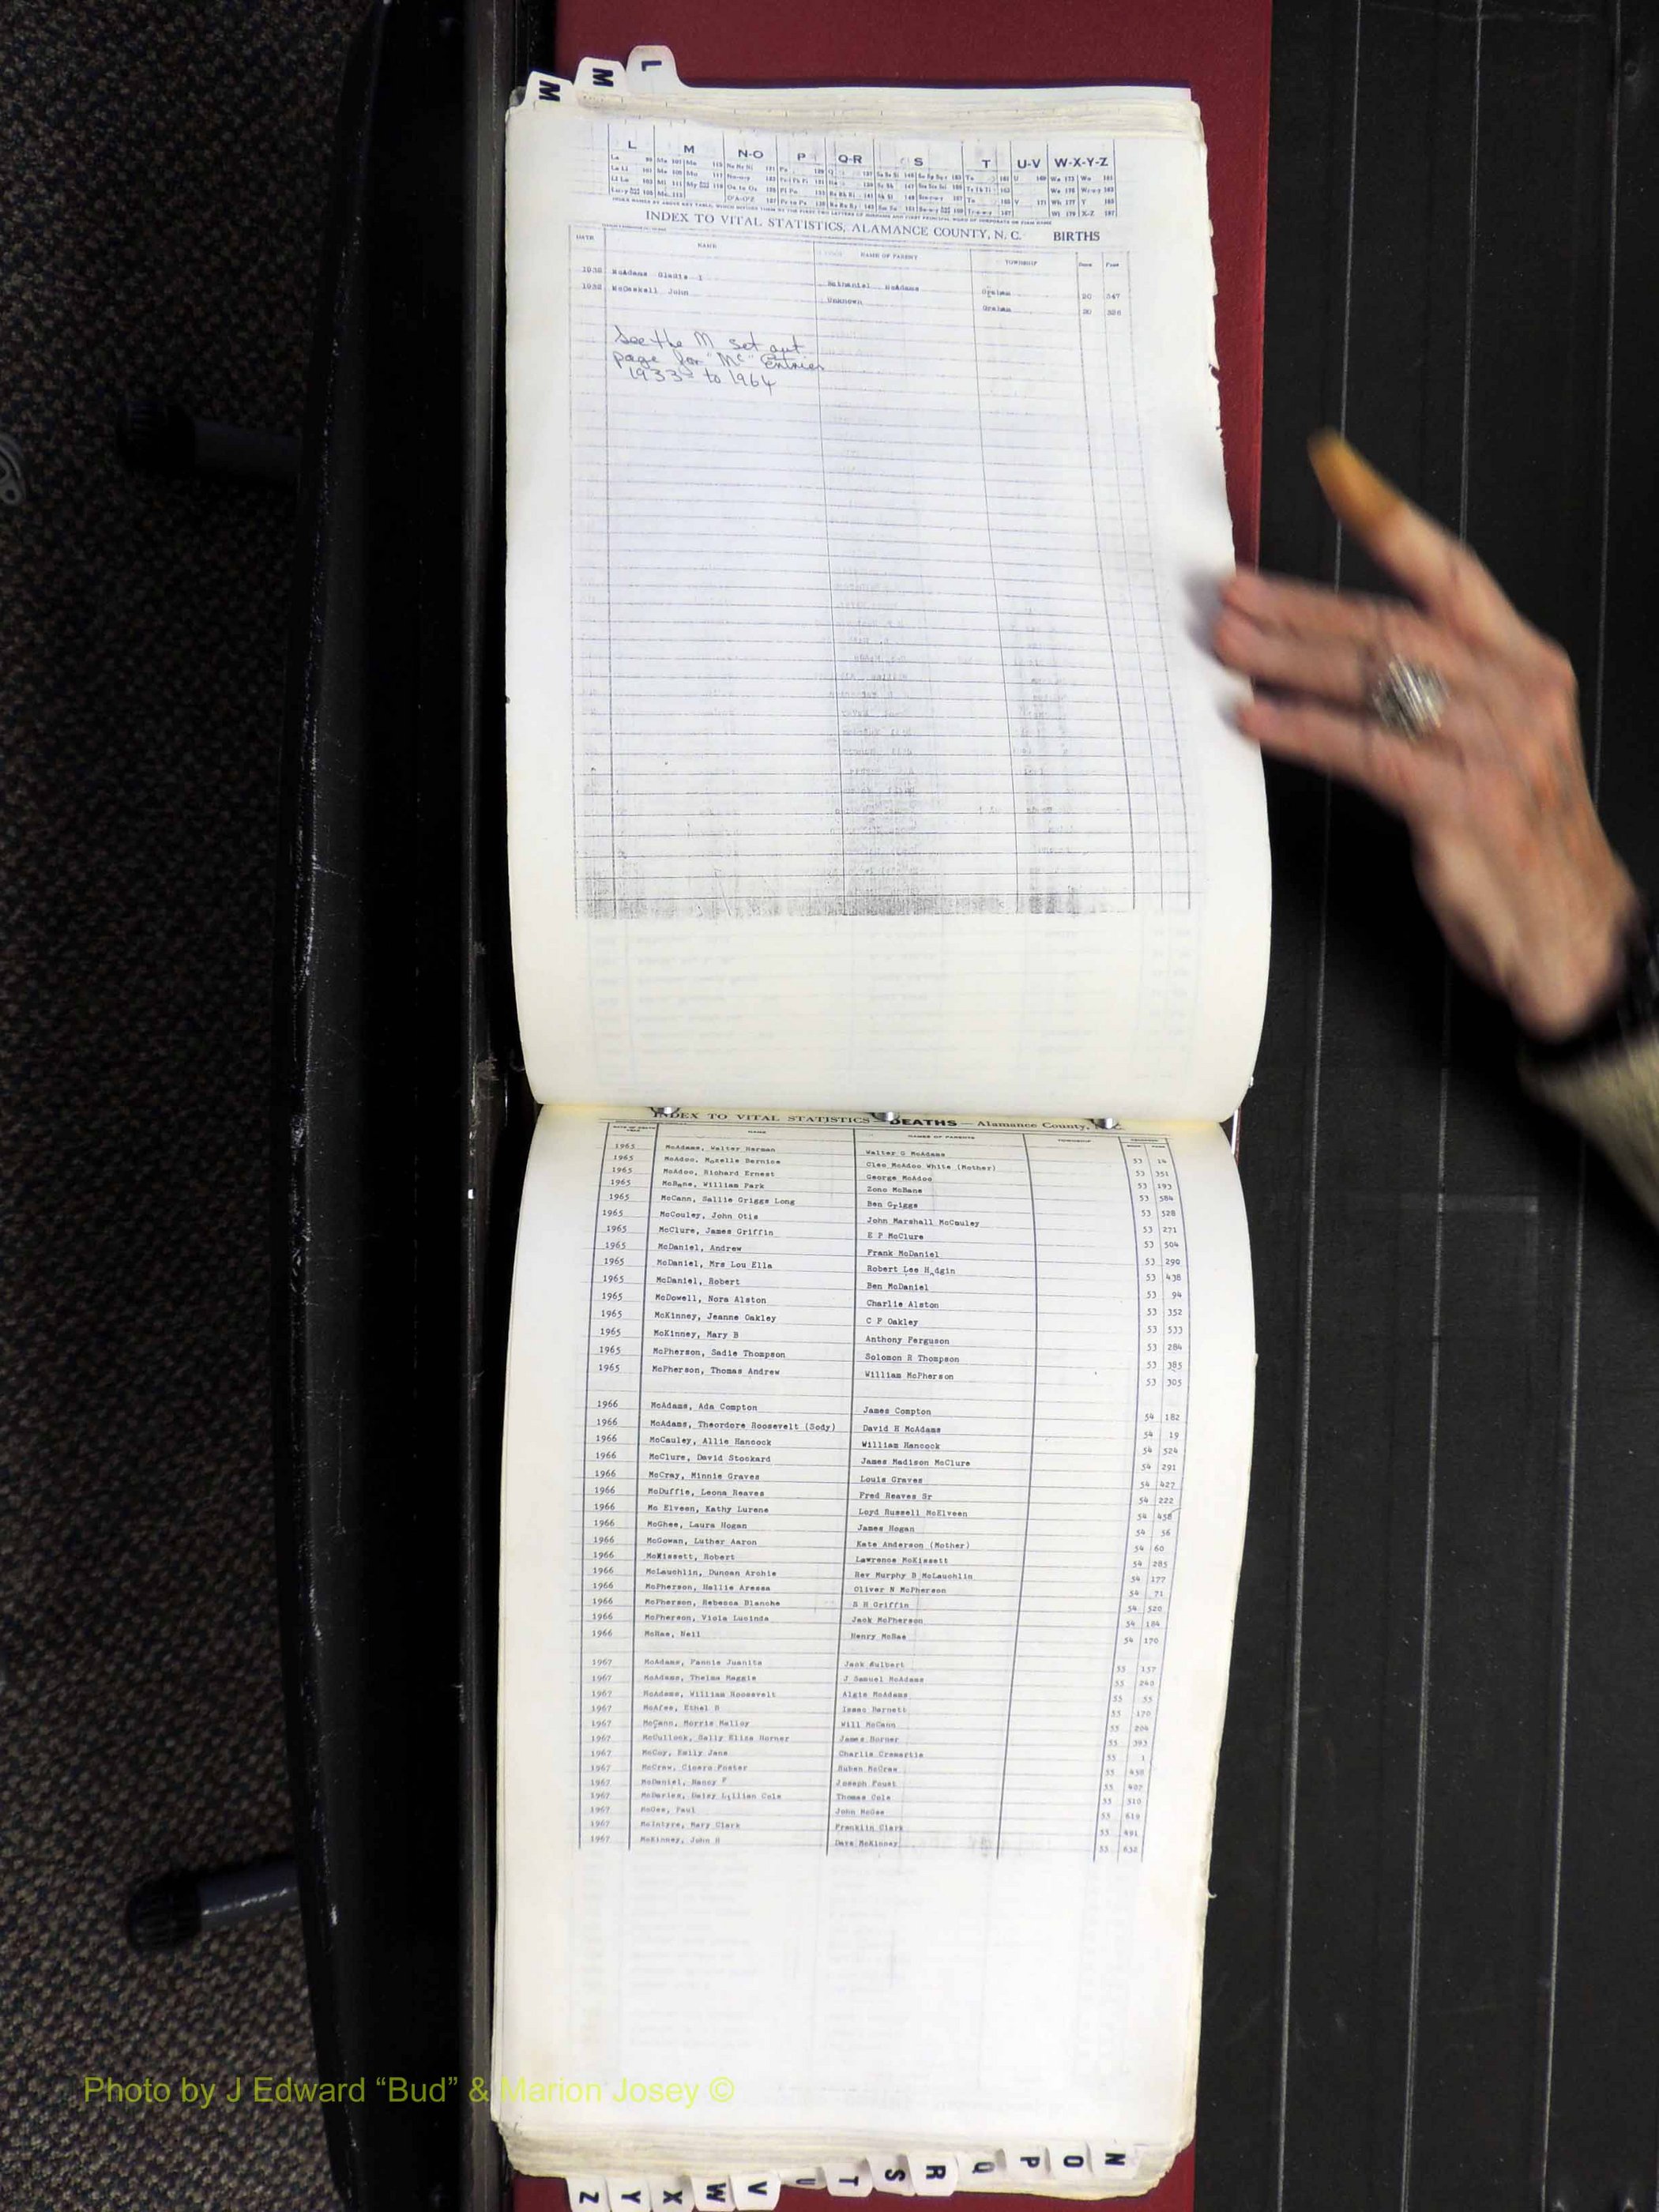 L
M
M
L M N-O P Q-R S T U-V W-X-Y-Z
INDEX TO VITAL STATISTICS, ALAMANCE COUNTY, N. C. BIRTHS
DATE NAME NAME OF PARENT TOWNSHIP Book Page
1932 McAdams Gladis I Nathaniel McAdams Graham 20 347
1932 John Unknown Graham 20
See the M set out
page for "Mc" Entries
1933 to 1964
INDEX TO VITAL STATISTICS DEATHS — Alamance County,
NAME NAMES OF PARENTS TOWNSHIP
1965 McAdams, Walter Herman Walter G McAdams 53 14
1965 McAdoo, Mozelle Bernice Cleo McAdoo White (Mother) 53 351
1965 McAdoo, Richard Ernest George McAdoo 53 193
1965 McBane, William Park Zeno McBane 53 584
1965 McCann, Sallie Griggs Long Ben Griggs 53 528
1965 McCouley, John Otis John Marshall McCauley 53 271
1965 McClure, James Griffin E P McClure 53 504
1965 McDaniel, Andrew Frank McDaniel 53 290
1965 McDaniel, Mrs Lou Ella Robert Lee H dgin 53 438
1965 McDaniel, Robert Ben McDaniel 53 94
1965 McDowell, Nora Alston Charlie Alston 53 352
1965 McKinney, Jeanne Oakley C F Oakley 53 533
1965 McKinney, Mary B Anthony Ferguson 53 284
1965 McPherson, Sadie Thompson Solomon R Thompson 53 385
1965 McPherson, Thomas Andrew William McPherson 53 305
1966 McAdams, Ada Compton James Compton 54 182
1966 McAdams, Theordore Roosevelt (Sody) David H McAdams 54 19
1966 McCauley, Allie Hancock William Hancock 54 524
1966 McClure, David Stockard James Madison McClure 54 291
1966 McCray, Minnie Graves Louis Graves 54 427
1966 McDuffie, Leona Reaves Fred Reaves Sr 54 222
1966 Mc Elveen, Kathy Lurene Loyd Russell McElveen 54 458
1966 McGhee, Laura Hogan James Hogan 54 56
1966 McGowan, Luther Aaron Kate Anderson (Mother) 54 60
1966 McKissett, Robert Lawrence McKissett 54 285
1966 McLauchlin, Duncan Archie Rev Murphy B McLauchlin 54 177
1966 McPherson, Hallie Aressa Oliver N McPherson 54 71
1966 McPherson, Rebecca Blanche S H Griffin 54 520
1966 McPherson, Viola Lucinda Jack McPherson 54 184
1966 McRae, Neil Henry McRae 54 170
1967 McAdams, Fannie Juanita Jack Aulbert 55 137
1967 McAdams, Thelma Maggie J Samuel McAdams 55 240
1967 McAdams, William Roosevelt Algie McAdams 55 55
1967 McAfee, Ethel B Isaac Barnett 55 170
1967 McCann, Morris Malloy Will McCann 55 204
1967 McCullock, Sally Eliza Horner James Horner 55 393
1967 McCoy, Emily Jane Charlie Cromartie 55 1
1967 McCraw, Cicero Foster Ruben McCraw 55 430
1967 McDaniel, Nancy F Joseph Foust 55 407
1967 Daisy Lillian Cole Thomas Cole 55 310
1967 McGee, Paul John McGee 55 618
1967 McIntyre, Mary Clark Franklin Clark 55 491
1967 McKinney, John H Dave McKinney 55 632
Photo by J Edward “Bud” & Marion Josey ©
N
O
P
Q
R
S
T
U
V
W
X
Y
Z